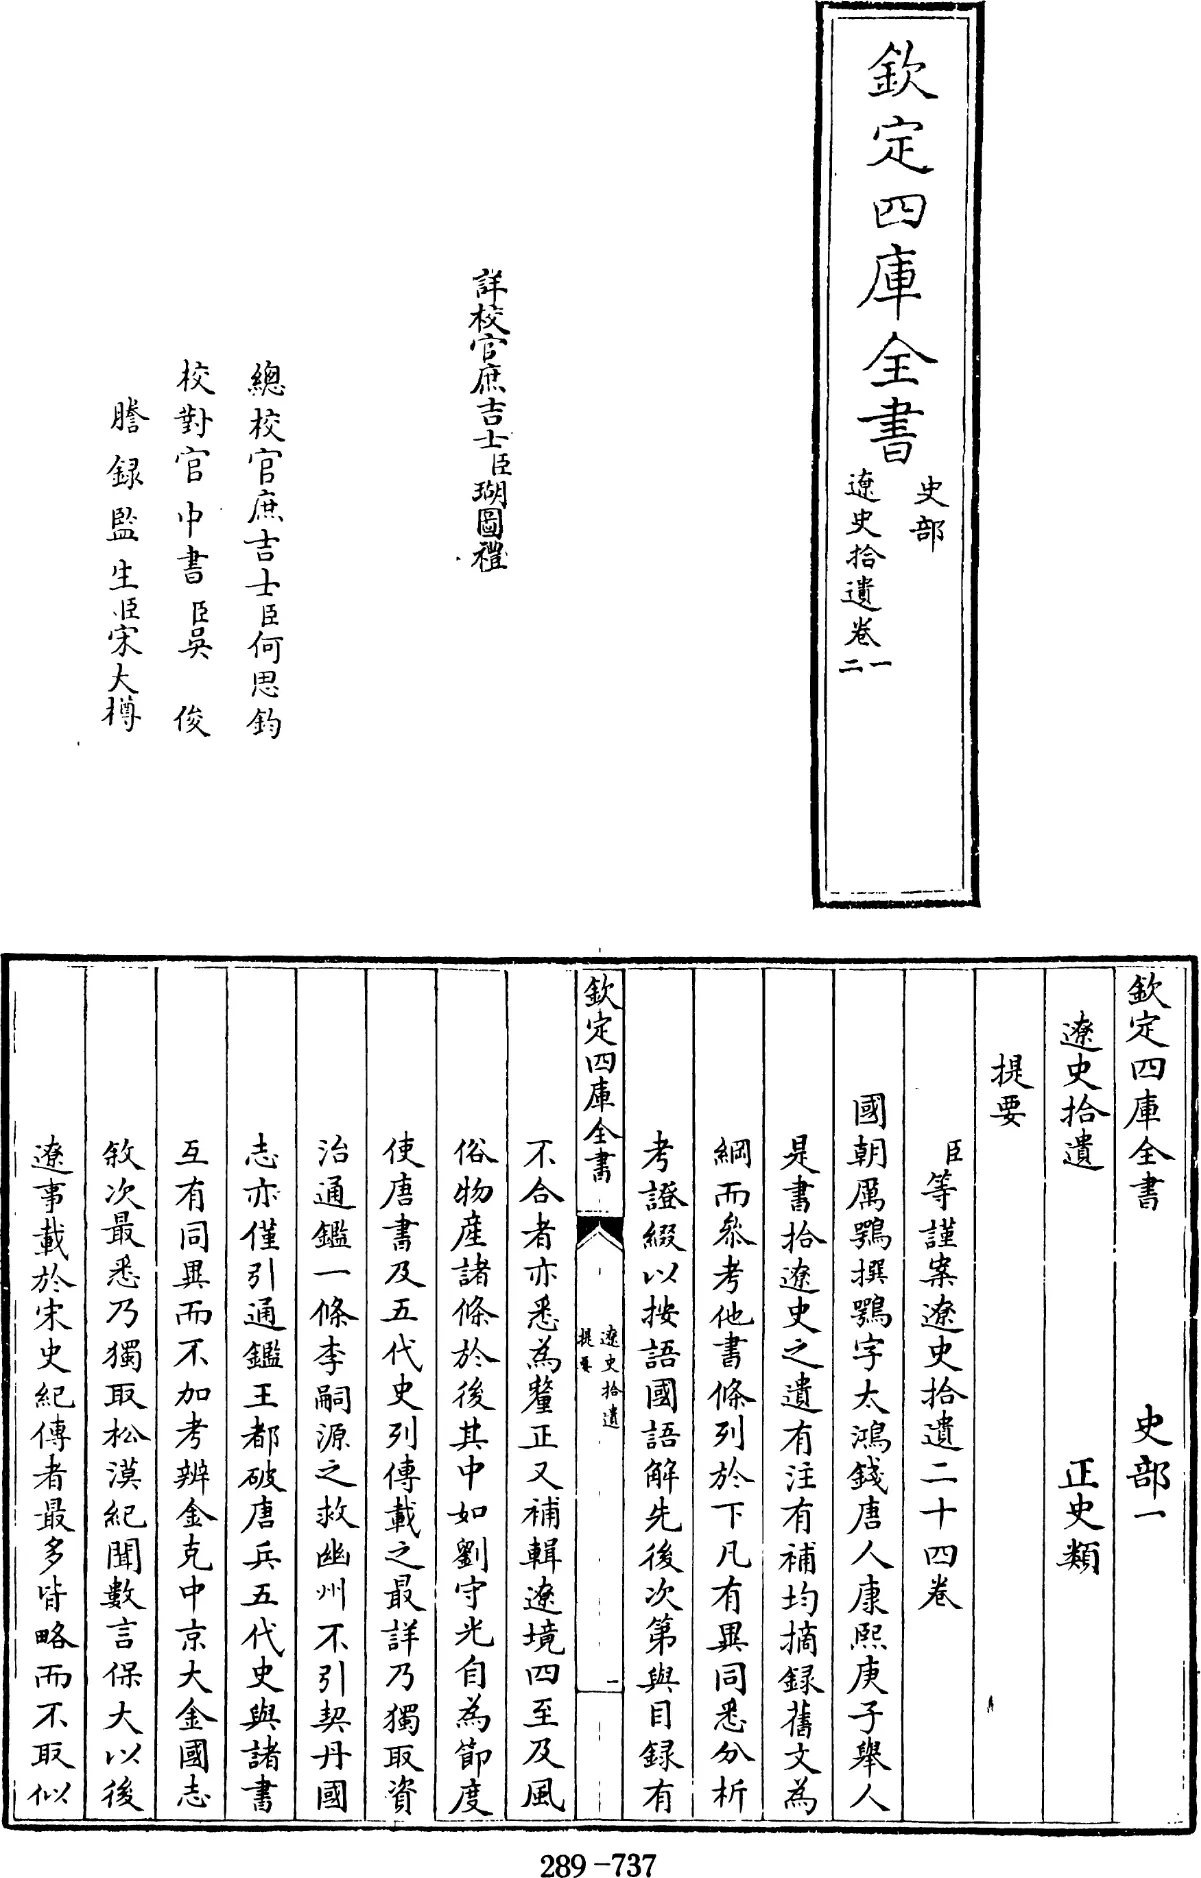 欽定四庫全書
史部
遼史拾遺卷一
二
詳校官庶吉士臣瑚圖禮
總校官庶吉士臣何思鈞
校對官中書臣吳俊
謄錄監生臣宋大樽
欽定四庫全書 史部一
遼史拾遺 正史類
提要
臣等謹案遼史拾遺二十四卷
國朝厲鶚撰鶚字太鴻錢唐人康熙庚子舉人
是書拾遼史之遺有注有補均摘録舊文為
綱而叅考他書條列於下凡有異同悉分析
考證綴以按語國語解先後次第與目録有
欽定四庫全書
遼史拾遺
提要
一
不合者亦悉為釐正又補輯遼境四至及風
俗物産諸條於後其中如劉守光自為節度
使唐書及五代史列傳載之最詳乃獨取資
治通鑑一條李嗣源之救幽州不引契丹國
志亦僅引通鑑王都破唐兵五代史與諸書
互有同異而不加考辨金克中京大金國志
敘次最悉乃獨取松漠紀聞數言保大以後
遼事載於宋史紀傳者最多皆略而不取似
289-737